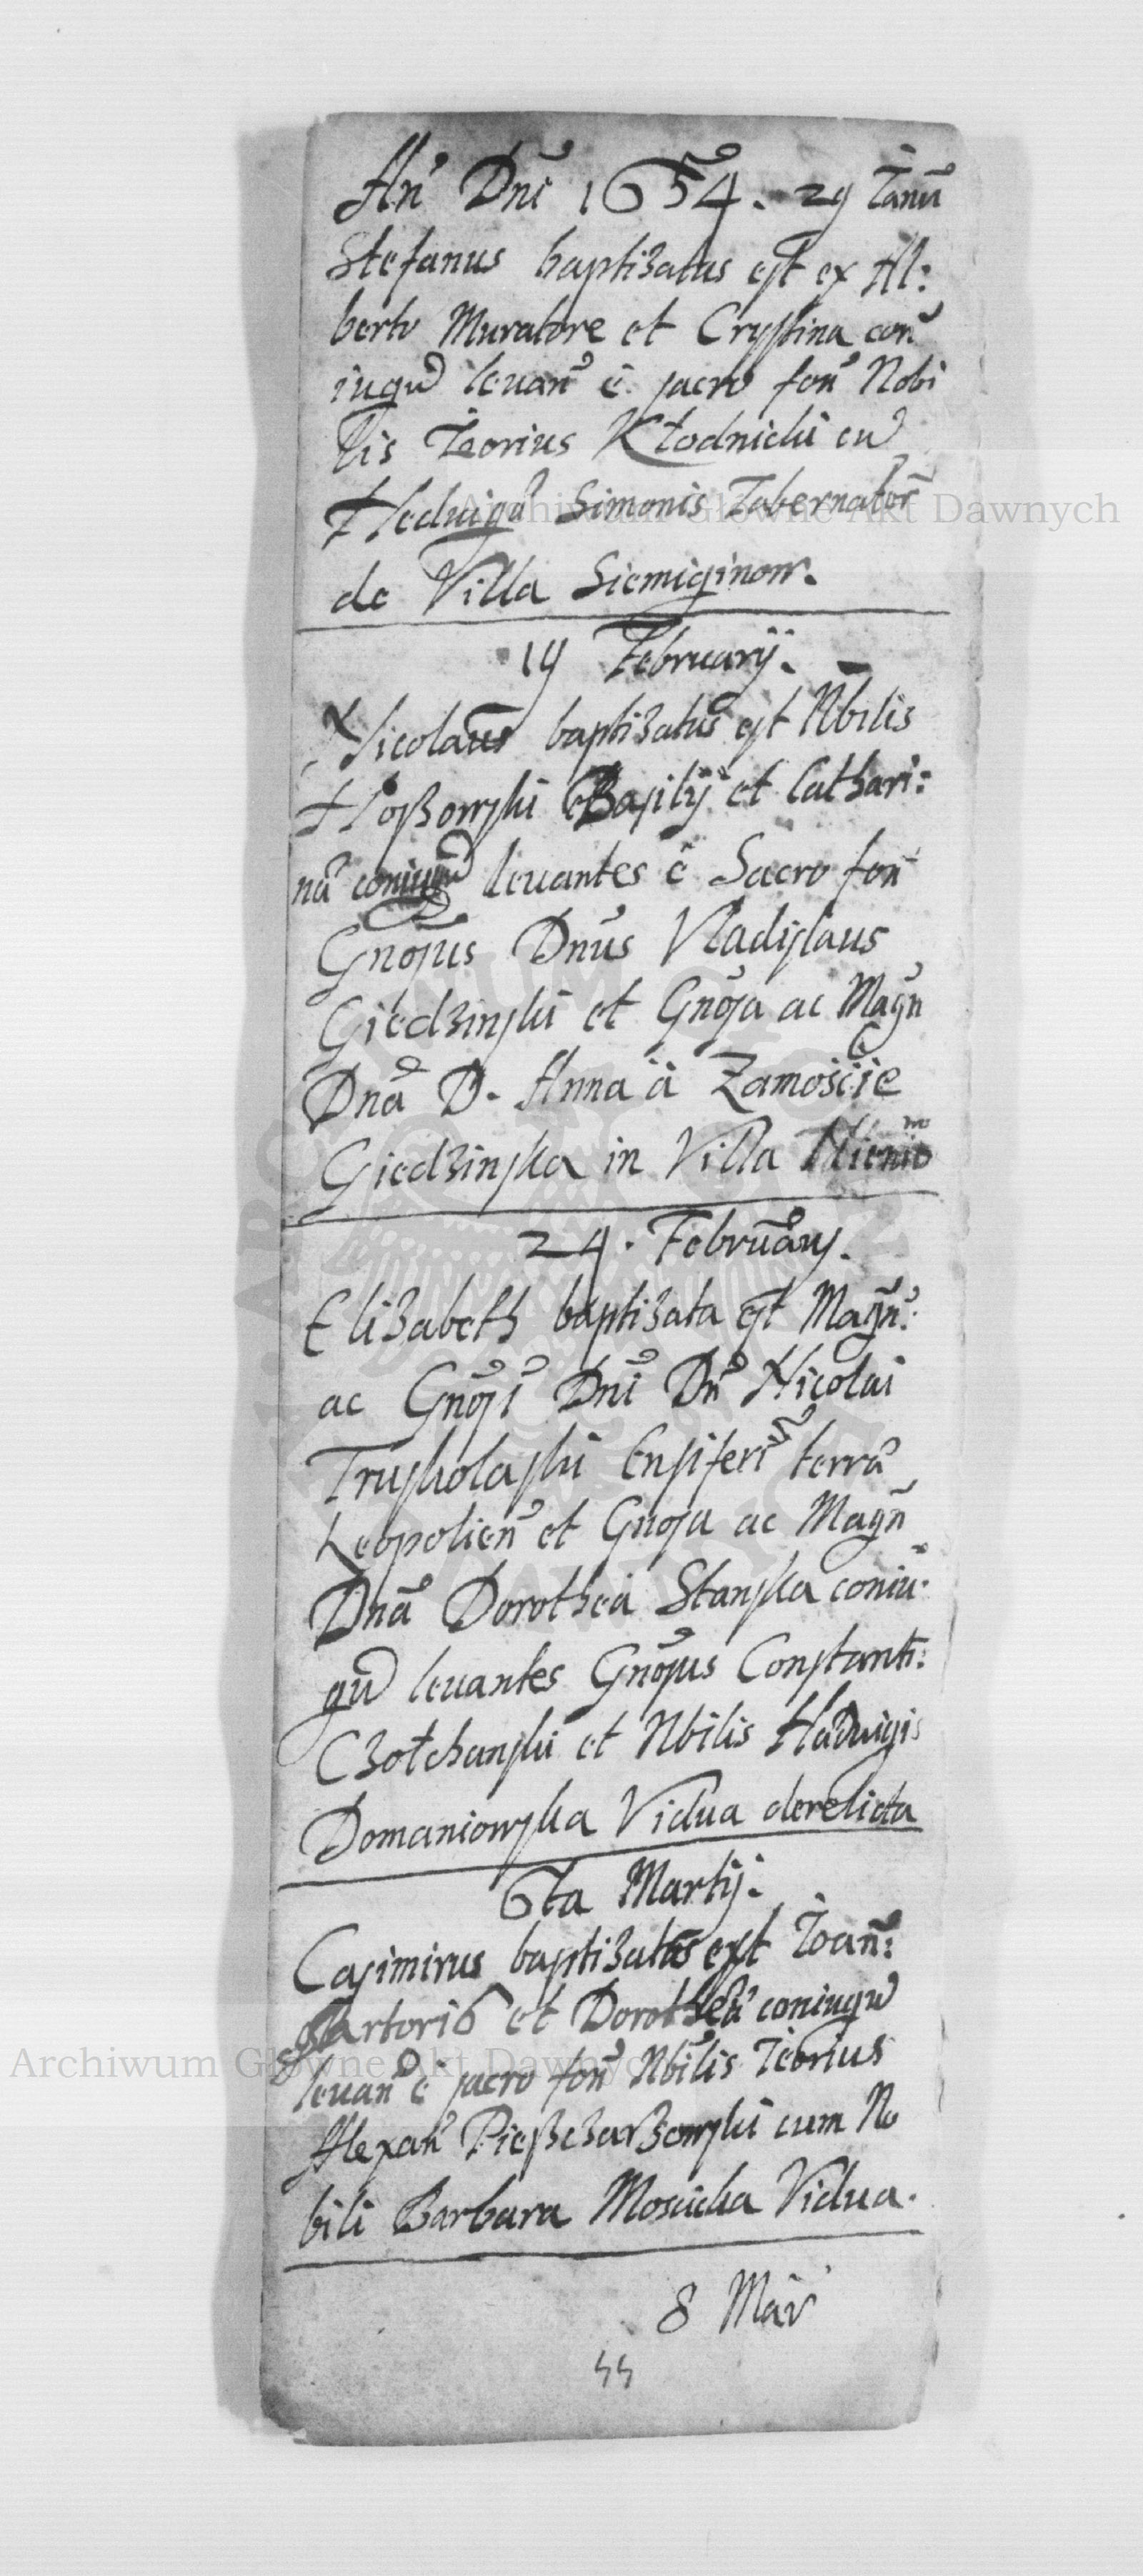 An Dni 1654. 29 Ianu
Stefanus baptizatus est ex Al:
berto Muratore et Crystina con
iugu leuan e sacro fon Nobi
lis Iorius Kłodnicki cu
Heduiga Simonis Tabernator
de Villa Siemiginow.
19 February.
Nicolaus baptizatus est Nbilis
Hoszowski Basily et Cathari:
na coniugu leuantes e Sacro fon
Gnosus Dnus Vladislaus
Giedzinski et Gnosa ac Magn
Dna D. Anna à Zamoscie
Giedzinska in Villa
24. February.
Elizabeth baptizata est Magn:
ac Gnosi Dni Dn Nicolai
Truskolaski Ensiferi terra
Leopolien et Gnosa ac Magn
Dna Dorothea Stanska coniu:
gu leuantes Gnosus Constanti:
Czołchanski et Nbilis Haduigis
Domaniowska Vidua derelicta
6ta Martij:
Casimirus baptizatus est Ioan:
Sartoris et Dorothea coniugu
leuan e sacro fon Nbilis Iorius
Alexan cum No
bili Barbara Moscicka Vidua.
8 Mar
44
Archiwum Główne Akt Dawnych
Archiwum Główne Akt Dawnych